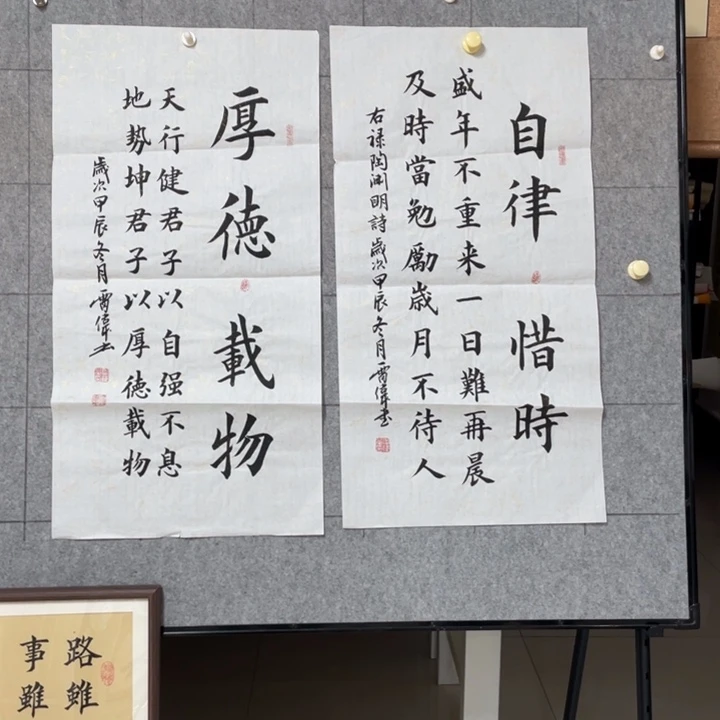 自律惜時
盛年不重来一日難再晨
及時當勉勵歳月不待人
右禄陶渊明詩歲次甲辰冬月雷偉書
厚徳載物
天行健君子以自强不息
地勢坤君子以厚徳載物
歲次甲辰冬月雷偉
路雖
事雖